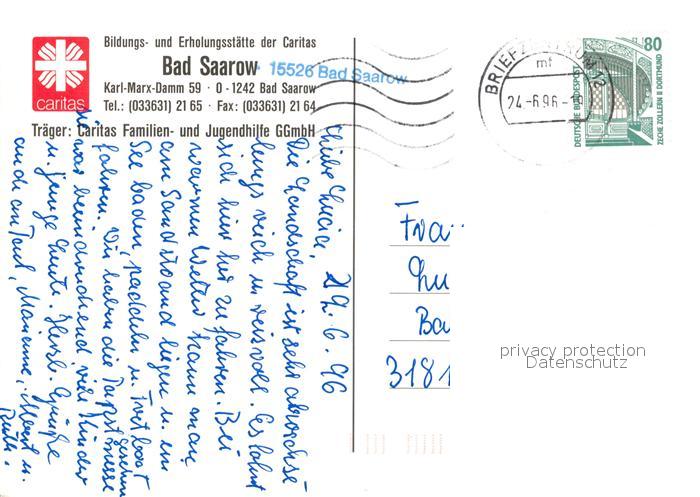 Bildungs- und Erholungsstätte der Caritas
Bad Saarow
15526 Bad Saarow
Karl-Marx-Damm 59 · O - 1242 Bad Saarow
Tel.: (033631) 21 65 · Fax: (033631) 21 64
caritas
Träger: Caritas Familien- und Jugendhilfe GGmbH
Liebe Lucia, 22. 6. 96
Die Landschaft ist sehr abwechse-
lungsreich u. reizvoll. Es lohnt
sich hier her zu fahren. Bei
warmen Wetter kann man
am Sandstrand liegen u. im
See baden, paddeln u. Tretboot
fahren. Wir haben die Papstmesse gesehen
war beeindruckend viele Kinder
u. junge Leute. Herzl. Grüße
auch an Paul, Marianne, Albert u.
Ruth.
BRIEFZENTRUM 12
mf
24.-6.96-18
80
DEUTSCHE BUNDESPOST
ZECHE ZOLLERN II DORTMUND
Fra
Lu
Ba
3181
privacy protection
Datenschutz